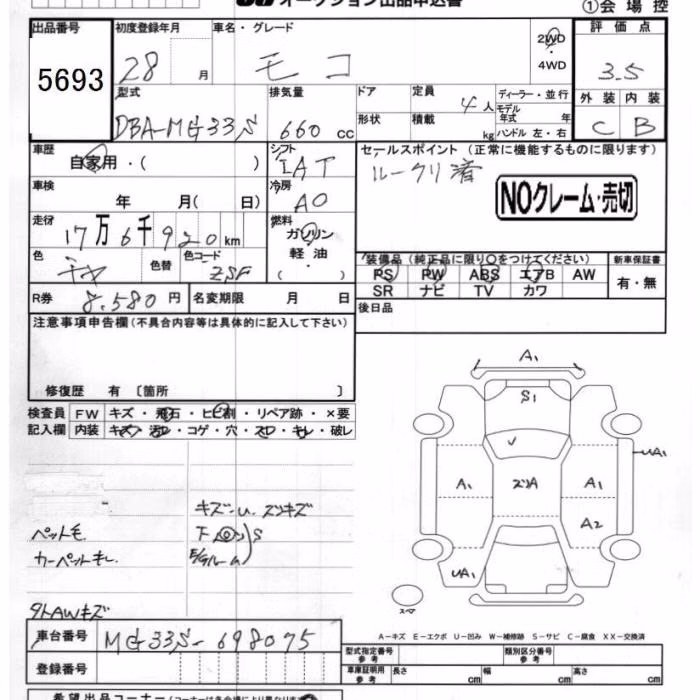 オークション出品申込書
①会場控
出品番号
5693
初度登録年月
28 月
車名・グレード
モコ
2WD
4WD
評価点
3.5
型式
DBA-MG33S
排気量
660 cc
ドア
形状
定員
4人
積載
kg
ディーラー・並行
モデル年式 年
ハンドル 左・右
外装 内装
C B
車歴
自家用・( )
シフト
IAT
セールスポイント (正常に機能するものに限ります)
ルークリ済
NOクレーム・売切
車検
年 月( 日)
冷房
AC
走行
17万6千920km
燃料
ガソリン
軽油
( )
色
チャ
色替
色コード
ZSF
装備品(純正品に限り○をつけてください)
PS PW ABS エアB AW
SR ナビ TV カワ
新車保証書
有・無
R券
8,580円
名変期限 月 日
後日品
注意事項申告欄(不具合内容等は具体的に記入して下さい)
修復歴 有 〔箇所 〕
検査員 FW キズ・飛石・ヒビ割・リペア跡・×要
記入欄 内装 キズ・汚レ・コゲ・穴・スレ・キレ・破レ
キズ・U.スリキズ
ペット毛
下回りS
カーペットキレ
E/gルーム
タトAWキズ
A1
S1
レ
UA1
A1
スリA
A1
A2
UA1
スペア
A-キズ E-エクボ U-凹み W-補修跡 S-サビ C-腐食 XX-交換済
車台番号
MG33S-698075
登録番号
型式指定番号 参考
類別区分番号 参考
車庫証明用 参考 長さ cm 幅 cm 高さ cm
希望出品コーナー